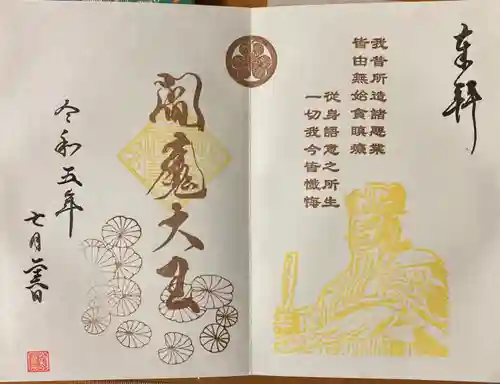 奉拝
我昔所造諸悪業
皆由無始貪瞋癡
従身語意之所生
一切我今皆懺悔
閻魔大王
令和五年
七月
日